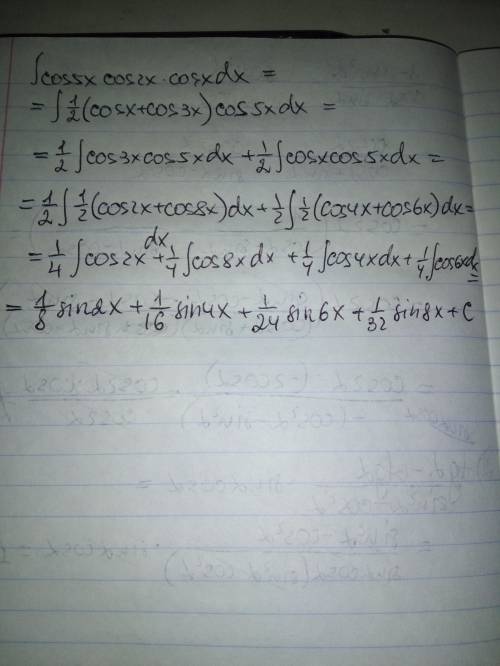 ∫cos5x cos2x · cosx dx =
= ∫ 1/2 (cosx + cos3x) cos5x dx =
= 1/2 ∫ cos3x cos5x dx + 1/2 ∫ cosx cos5x dx =
= 1/2 ∫ 1/2 (cos2x + cos8x) dx + 1/2 ∫ 1/2 (cos4x + cos6x) dx =
= 1/4 ∫ cos2x dx + 1/4 ∫ cos8x dx + 1/4 ∫ cos4x dx + 1/4 ∫ cos6x dx =
= 1/8 sin2x + 1/16 sin4x + 1/24 sin6x + 1/32 sin8x + C